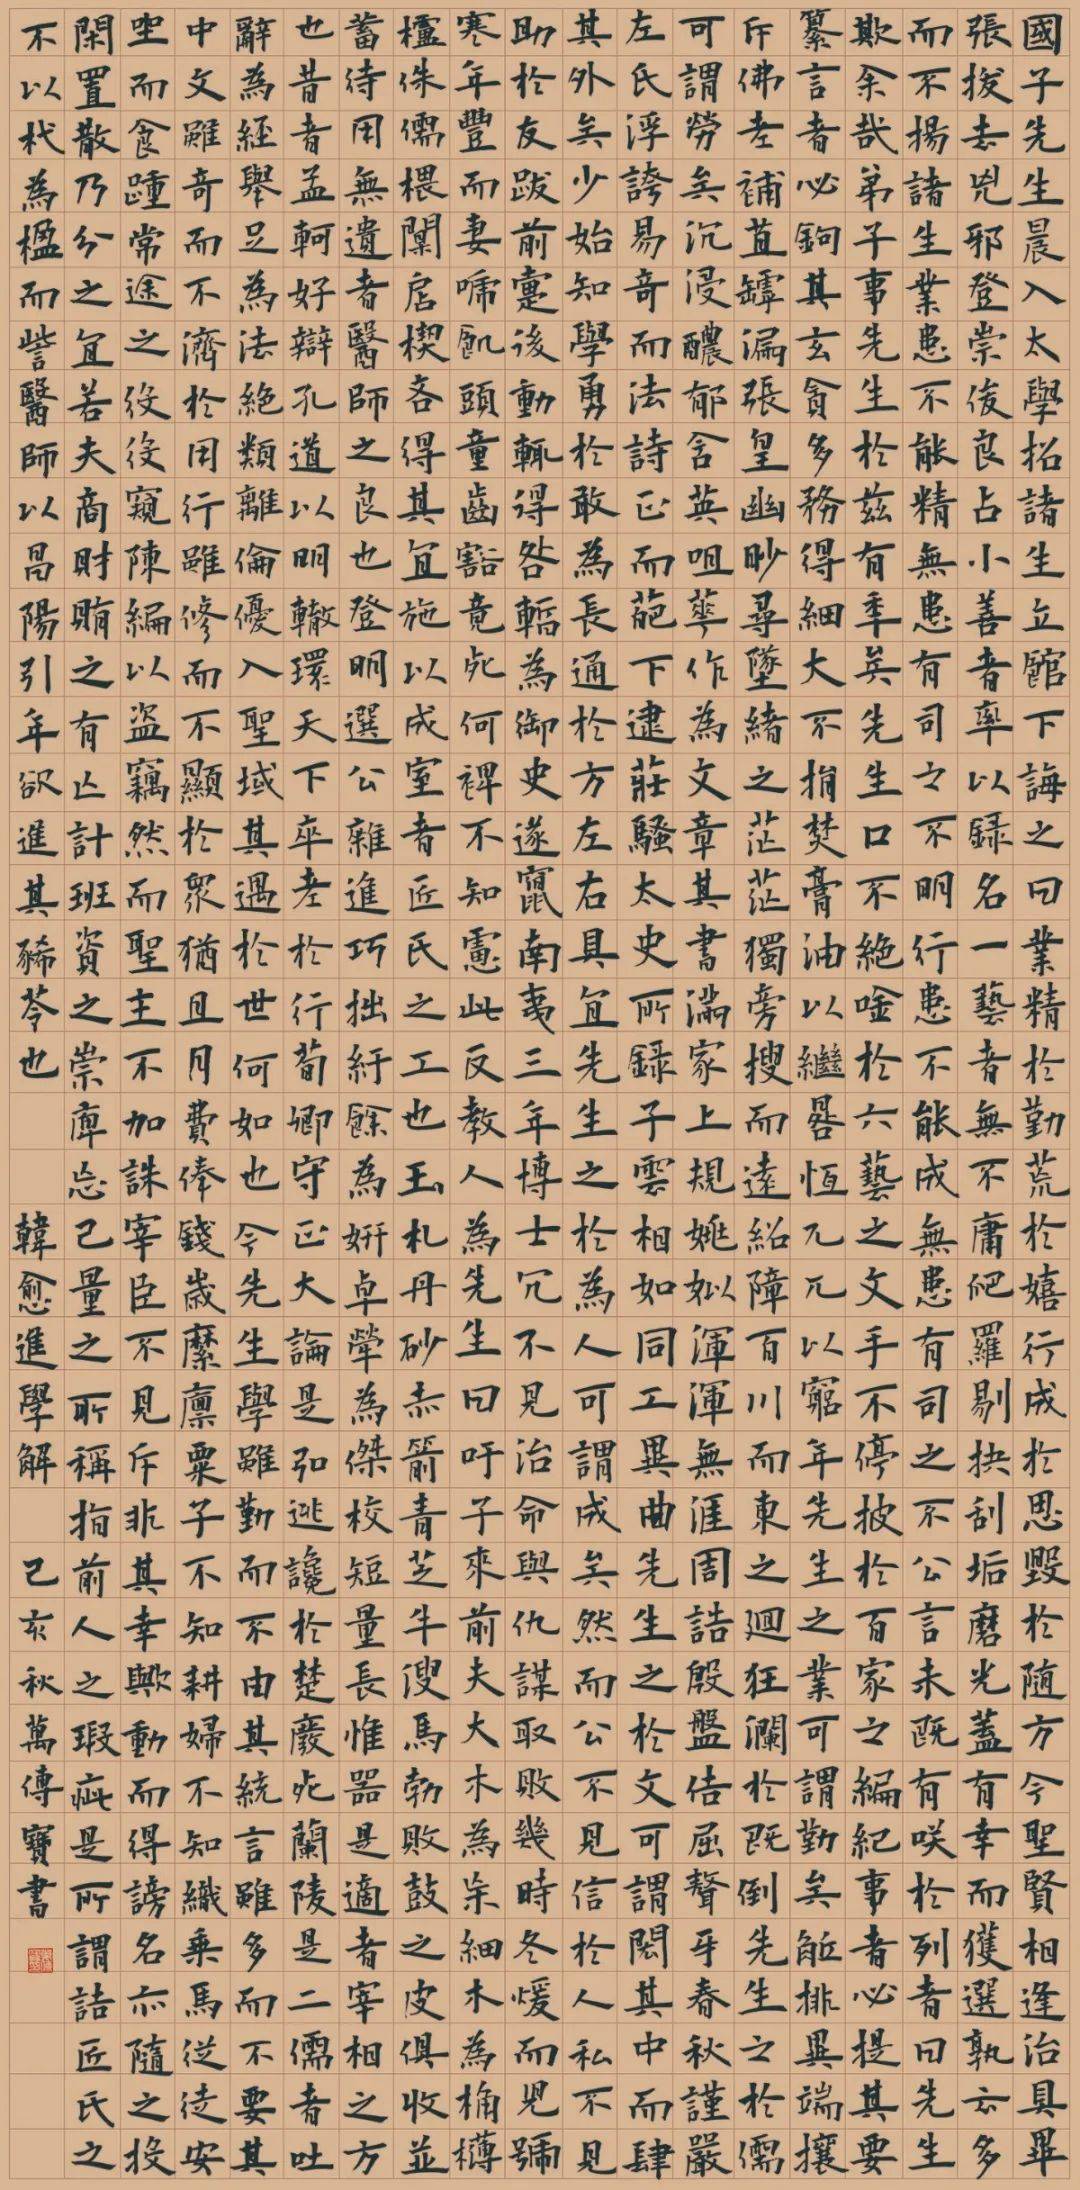 國子先生晨入太學招諸生立館下誨之曰業精於勤荒於嬉行成於思毀於隨方今聖賢相逢治具畢
張拔去兇邪登崇俊良占小善者率以錄名一藝者無不庸爬羅剔抉刮垢磨光蓋有幸而獲選孰云多
而不揚諸生業患不能精無患有司之不明行患不能成無患有司之不公言未既有咲於列者曰先生
欺余哉弟子事先生於茲有季矣先生口不絕唫於六藝之文手不停披於百家之編紀事者必提其要
纂言者必鉤其玄貪多務得細大不捐焚膏油以繼晷恆兀兀以窮年先生之業可謂勤矣觝排異端攘
斥佛老補苴罅漏張皇幽眇尋墜緒之茫茫獨旁搜而遠紹障百川而東之迴狂瀾於既倒先生之於儒
可謂勞矣沉浸醲郁含英咀華作為文章其書滿家上規姚姒渾渾無涯周誥殷盤佶屈聱牙春秋謹嚴
左氏浮誇易奇而法詩正而葩下逮莊騷太史所錄子雲相如同工異曲先生之於文可謂閎其中而肆
其外矣少始知學勇於敢為長通於方左右具宜先生之於為人可謂成矣然而公不見信於人私不見
助於友跋前疐後動輒得咎暫為御史遂竄南夷三年博士冗不見治命與仇謀取敗幾時冬煖而兒號
寒年豐而妻啼飢頭童齒豁竟死何裨不知慮此反教人為先生曰吁子來前夫大木為杗細木為桷欂
櫨侏儒椳闑扂楔各得其宜施以成室者匠氏之工也玉札丹砂赤箭青芝牛溲馬勃敗鼓之皮俱收並
蓄待用無遺者醫師之良也登明選公雜進巧拙紆餘為妍卓犖為傑校短量長惟器是適者宰相之方
也昔者孟軻好辯孔道以明轍環天下卒老於行荀卿守正大論是弘逃讒於楚廢死蘭陵是二儒者吐
辭為經舉足為法絕類離倫優入聖域其遇於世何如也今先生學雖勤而不由其統言雖多而不要其
中文雖奇而不濟於用行雖修而不顯於眾猶且月費俸錢歲縻廩粟子不知耕婦不知織乘馬從徒安
坐而食踵常途之役役窺陳編以盜竊然而聖主不加誅宰臣不見斥非其幸歟動而得謗名亦隨之投
閑置散乃分之宜若夫商財賄之有亡計班資之崇庳忘己量之所稱指前人之瑕疵是所謂詰匠氏之
不以杙為楹而訾醫師以昌陽引年欲進其豨苓也
韓愈進學解
己亥秋萬傳寶書